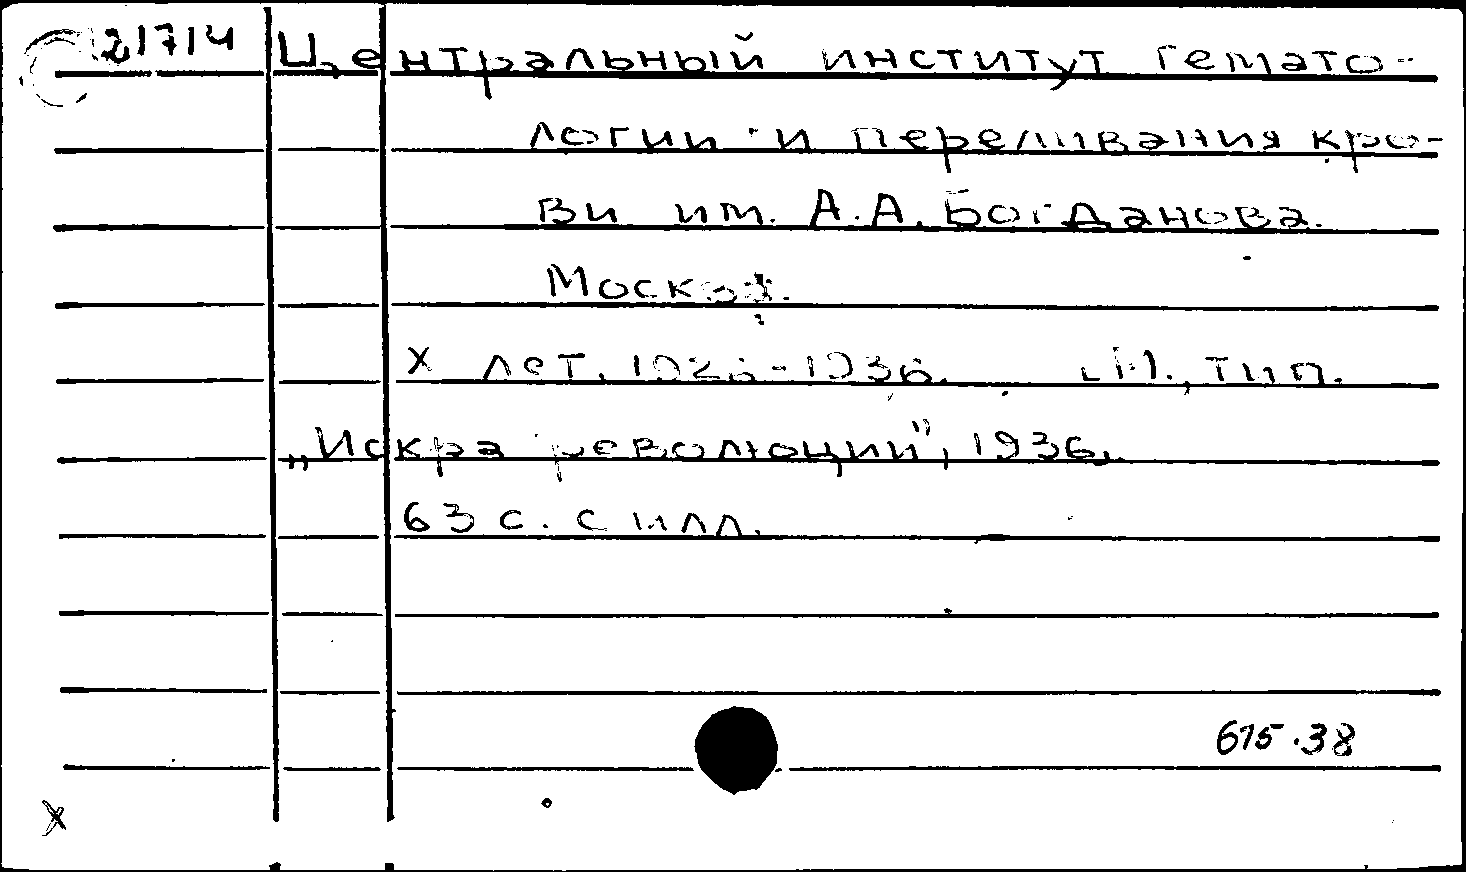 21714 Центральный институт гемато-
логии и переливания кро-
ви им. А.А. Богданова.
Москва.
X лет. 1926-1936. [М.], тип.
„Искра революции", 1936.
63 с. с илл.
615.38
X